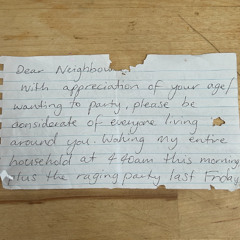 Dear Neighbour
With appreciation of your age/
wanting to party, please be
considerate of everyone living
around you. Waking my entire
household at 4:40am this morning
plus the raging party last Friday